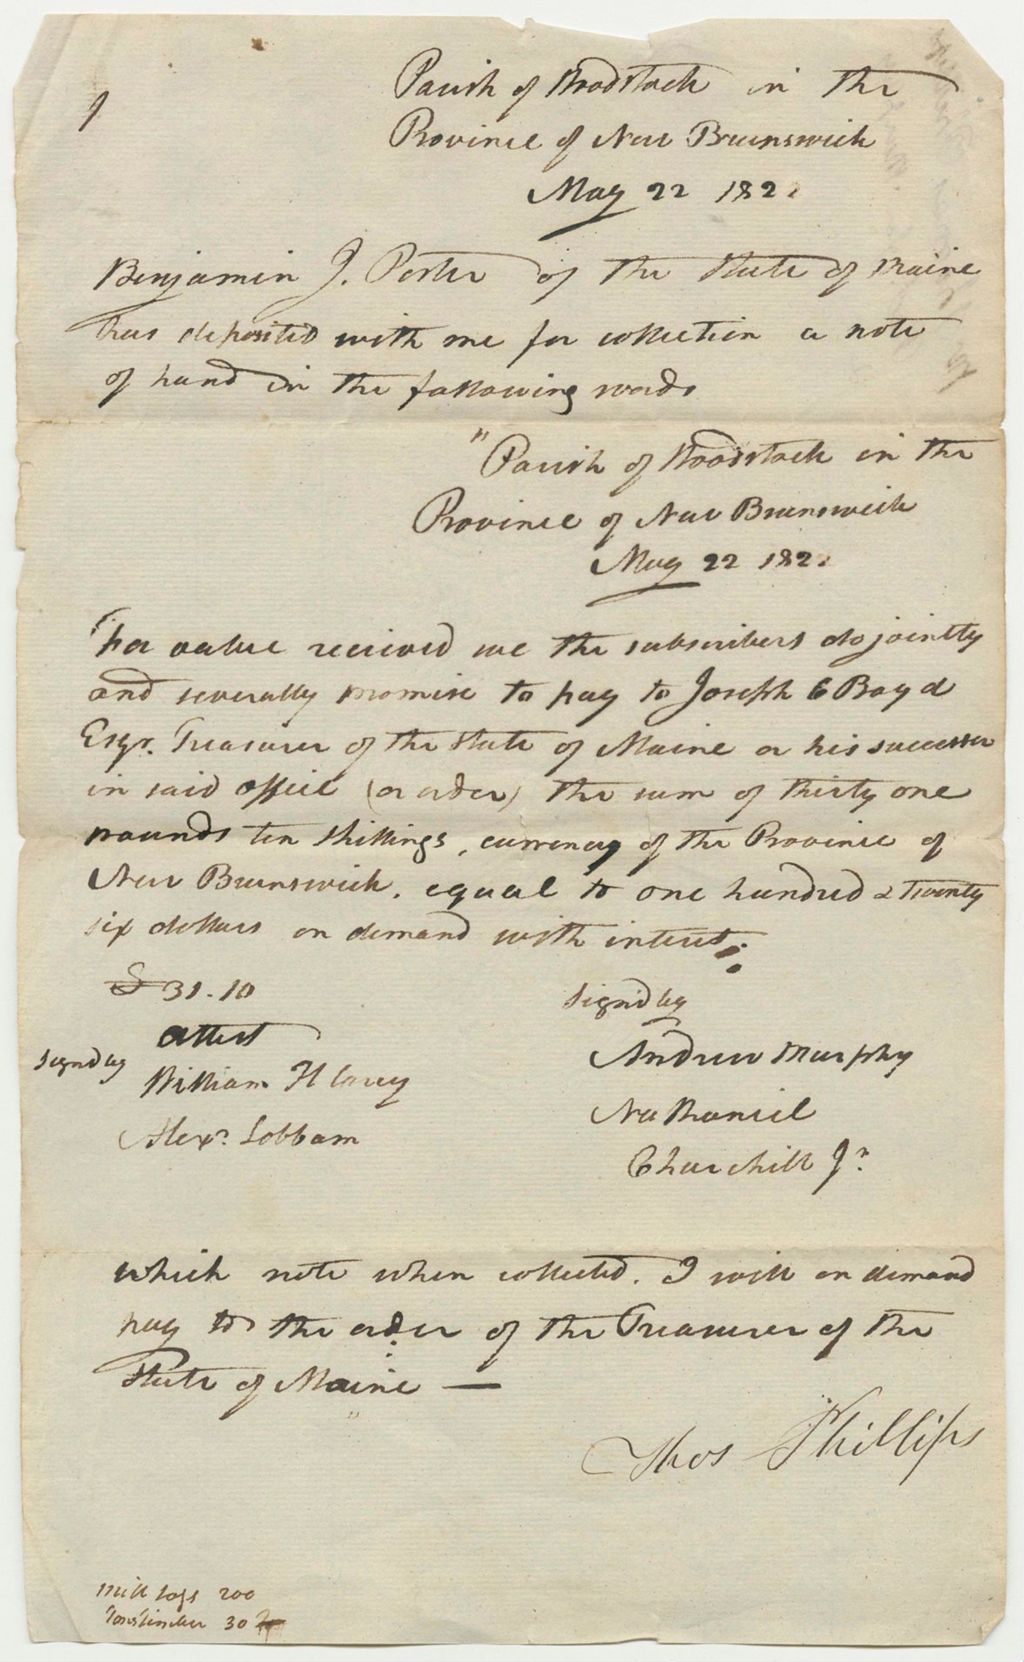 1
Parish of Woodstock in the
Province of New Brunswick
May 22 1822
Benjamin J. Porter of the State of Maine
has deposited with me for collection a note
of hand in the following words
"Parish of Woodstock in the
Province of New Brunswick
May 22 1822
For value received we the subscribers do jointly
and severally promise to pay to Joseph C Boyd
Esqr. Treasurer of the State of Maine or his successor
in said office (or order) the sum of thirty one
pounds ten shillings, currency of the Province of
New Brunswick. equal to one hundred & twenty
six dollars on demand with interest.
£ 31.10
attest
signed by
William H
Alexr.
signd by
Andrew Murphy
Nathaniel
Churchill Jr.
which note when collected. I will on demand
pay to the order of the Treasurer of the
State of Maine —
Thos Phillips
mill logs 200
Tons timber 30